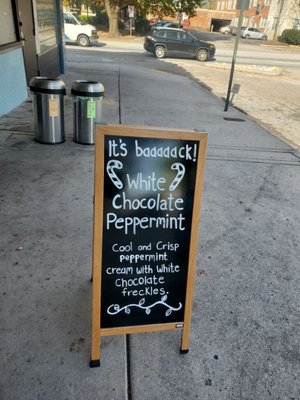 It's baaaack!
White
Chocolate
Peppermint
Cool and Crisp
peppermint
cream with White
Chocolate
freckles.